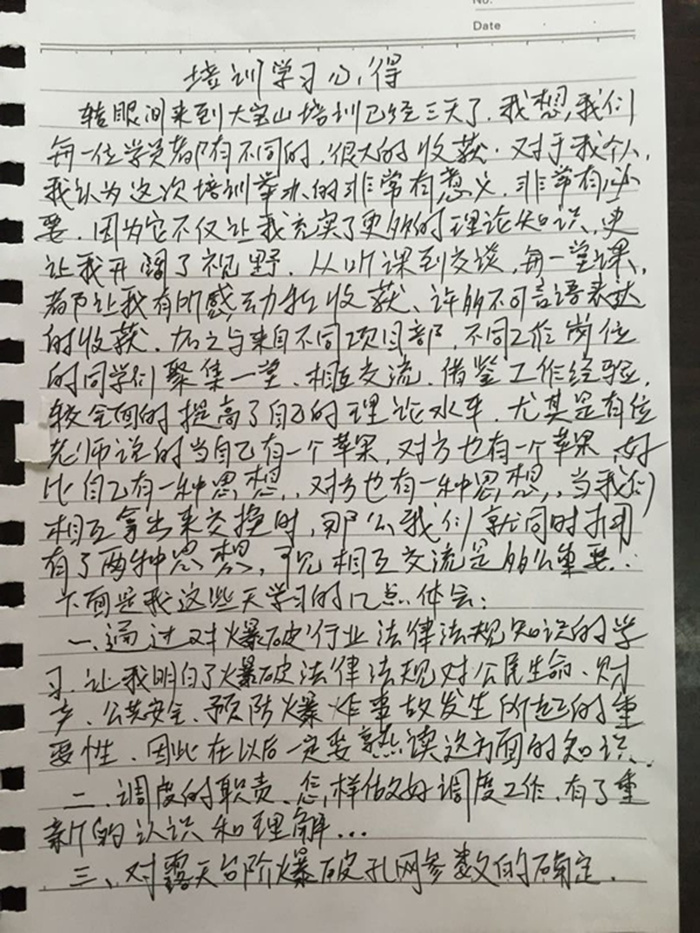 No.
Date
培训学习心得
转眼间来到大宝山培训已经三天了.我想,我们
每一位学员都有不同的,很大的收获.对于我个人,
我认为这次培训举办的非常有意义,非常有必
要.因为它不仅让我充实了更多的理论知识,更
让我开阔了视野.从听课到交谈,每一堂课,
都让我有所感动和收获、许多不可言语表达
的收获.加之与来自不同项目部,不同工作岗位
的同学们聚集一堂、相互交流.借鉴工作经验,
较全面的提高了自己的理论水平.尤其是有位
老师说的当自己有一个苹果,对方也有一个苹果,好
比自己有一种思想,,对方也有一种思想,,当我们
相互拿出来交换时,那么我们就同时拥
有了两种思想,可见相互交流是多么重要.
下面是我这些天学习的几点体会:
一.通过对爆破行业法律法规知识的学
习.让我明白了爆破法律法规对公民生命、财
产、公共安全、预防爆炸事故发生所起的重
要性.因此在以后一定要熟读这方面的知识.
二.调度的职责、怎样做好调度工作,有了重
新的认识和理解...
三、对露天台阶爆破孔网参数的确定.